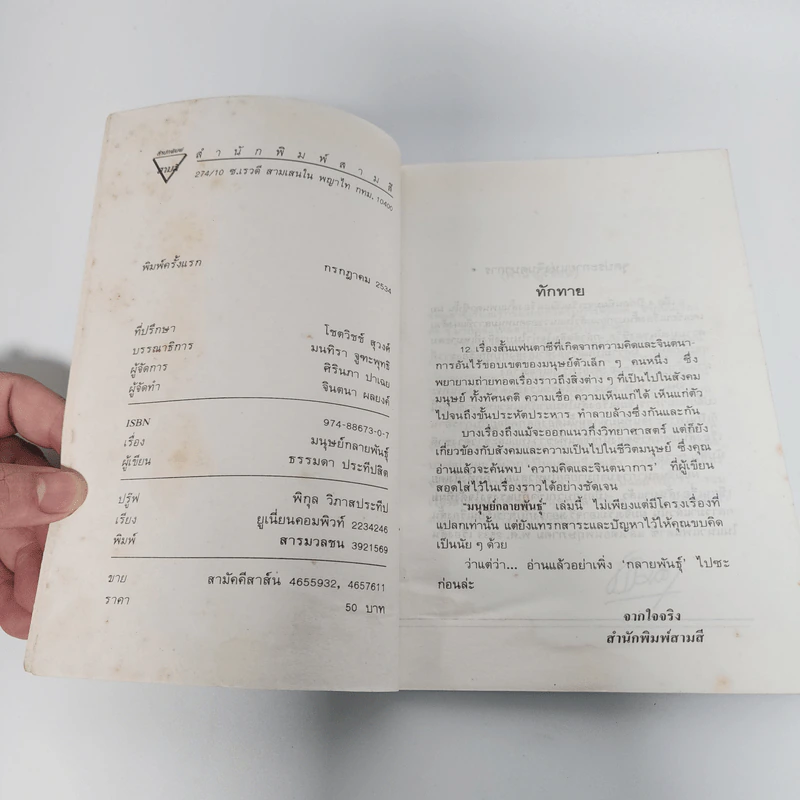 สามสี
สำนักพิมพ์สามสี
274/10 ซ.เรวดี สามเสนใน พญาไท กทม. 10400
พิมพ์ครั้งแรก กรกฎาคม 2534
ที่ปรึกษา โชตวิชช์ สุวงศ์
บรรณาธิการ มนทิรา จูฑะพุทธิ
ผู้จัดการ ศิรินภา ปาเฉย
ผู้จัดทำ จินตนา ผลยงค์
ISBN 974-88673-0-7
เรื่อง มนุษย์กลายพันธุ์
ผู้เขียน ธรรมดา ประทีปสิต
ปรู๊ฟ พิกุล วิภาสประทีป
เรียง ยูเนี่ยนคอมพิวท์ 2234246
พิมพ์ สารมวลชน 3921569
ขาย สามัคคีสาส์น 4655932, 4657611
ราคา 50 บาท
ทักทาย
12 เรื่องสั้นแฟนตาซีที่เกิดจากความคิดและจินตนา-
การอันไร้ขอบเขตของมนุษย์ตัวเล็ก ๆ คนหนึ่ง ซึ่ง
พยายามถ่ายทอดเรื่องราวถึงสิ่งต่าง ๆ ที่เป็นไปในสังคม
มนุษย์ ทั้งทัศนคติ ความเชื่อ ความเห็นแก่ได้ เห็นแก่ตัว
ไปจนถึงขั้นประหัตประหาร ทำลายล้างซึ่งกันและกัน
บางเรื่องถึงแม้จะออกแนวกึ่งวิทยาศาสตร์ แต่ก็ยัง
เกี่ยวข้องกับสังคมและความเป็นไปในชีวิตมนุษย์ ซึ่งคุณ
อ่านแล้วจะค้นพบ ‘ความคิดและจินตนาการ’ ที่ผู้เขียน
สอดใส่ไว้ในเรื่องราวได้อย่างชัดเจน
“มนุษย์กลายพันธุ์” เล่มนี้ ไม่เพียงแต่มีโครงเรื่องที่
แปลกเท่านั้น แต่ยังแทรกสาระและปัญหาไว้ให้คุณขบคิด
เป็นนัย ๆ ด้วย
ว่าแต่ว่า... อ่านแล้วอย่าเพิ่ง ‘กลายพันธุ์’ ไปซะ
ก่อนล่ะ
จากใจจริง
สำนักพิมพ์สามสี